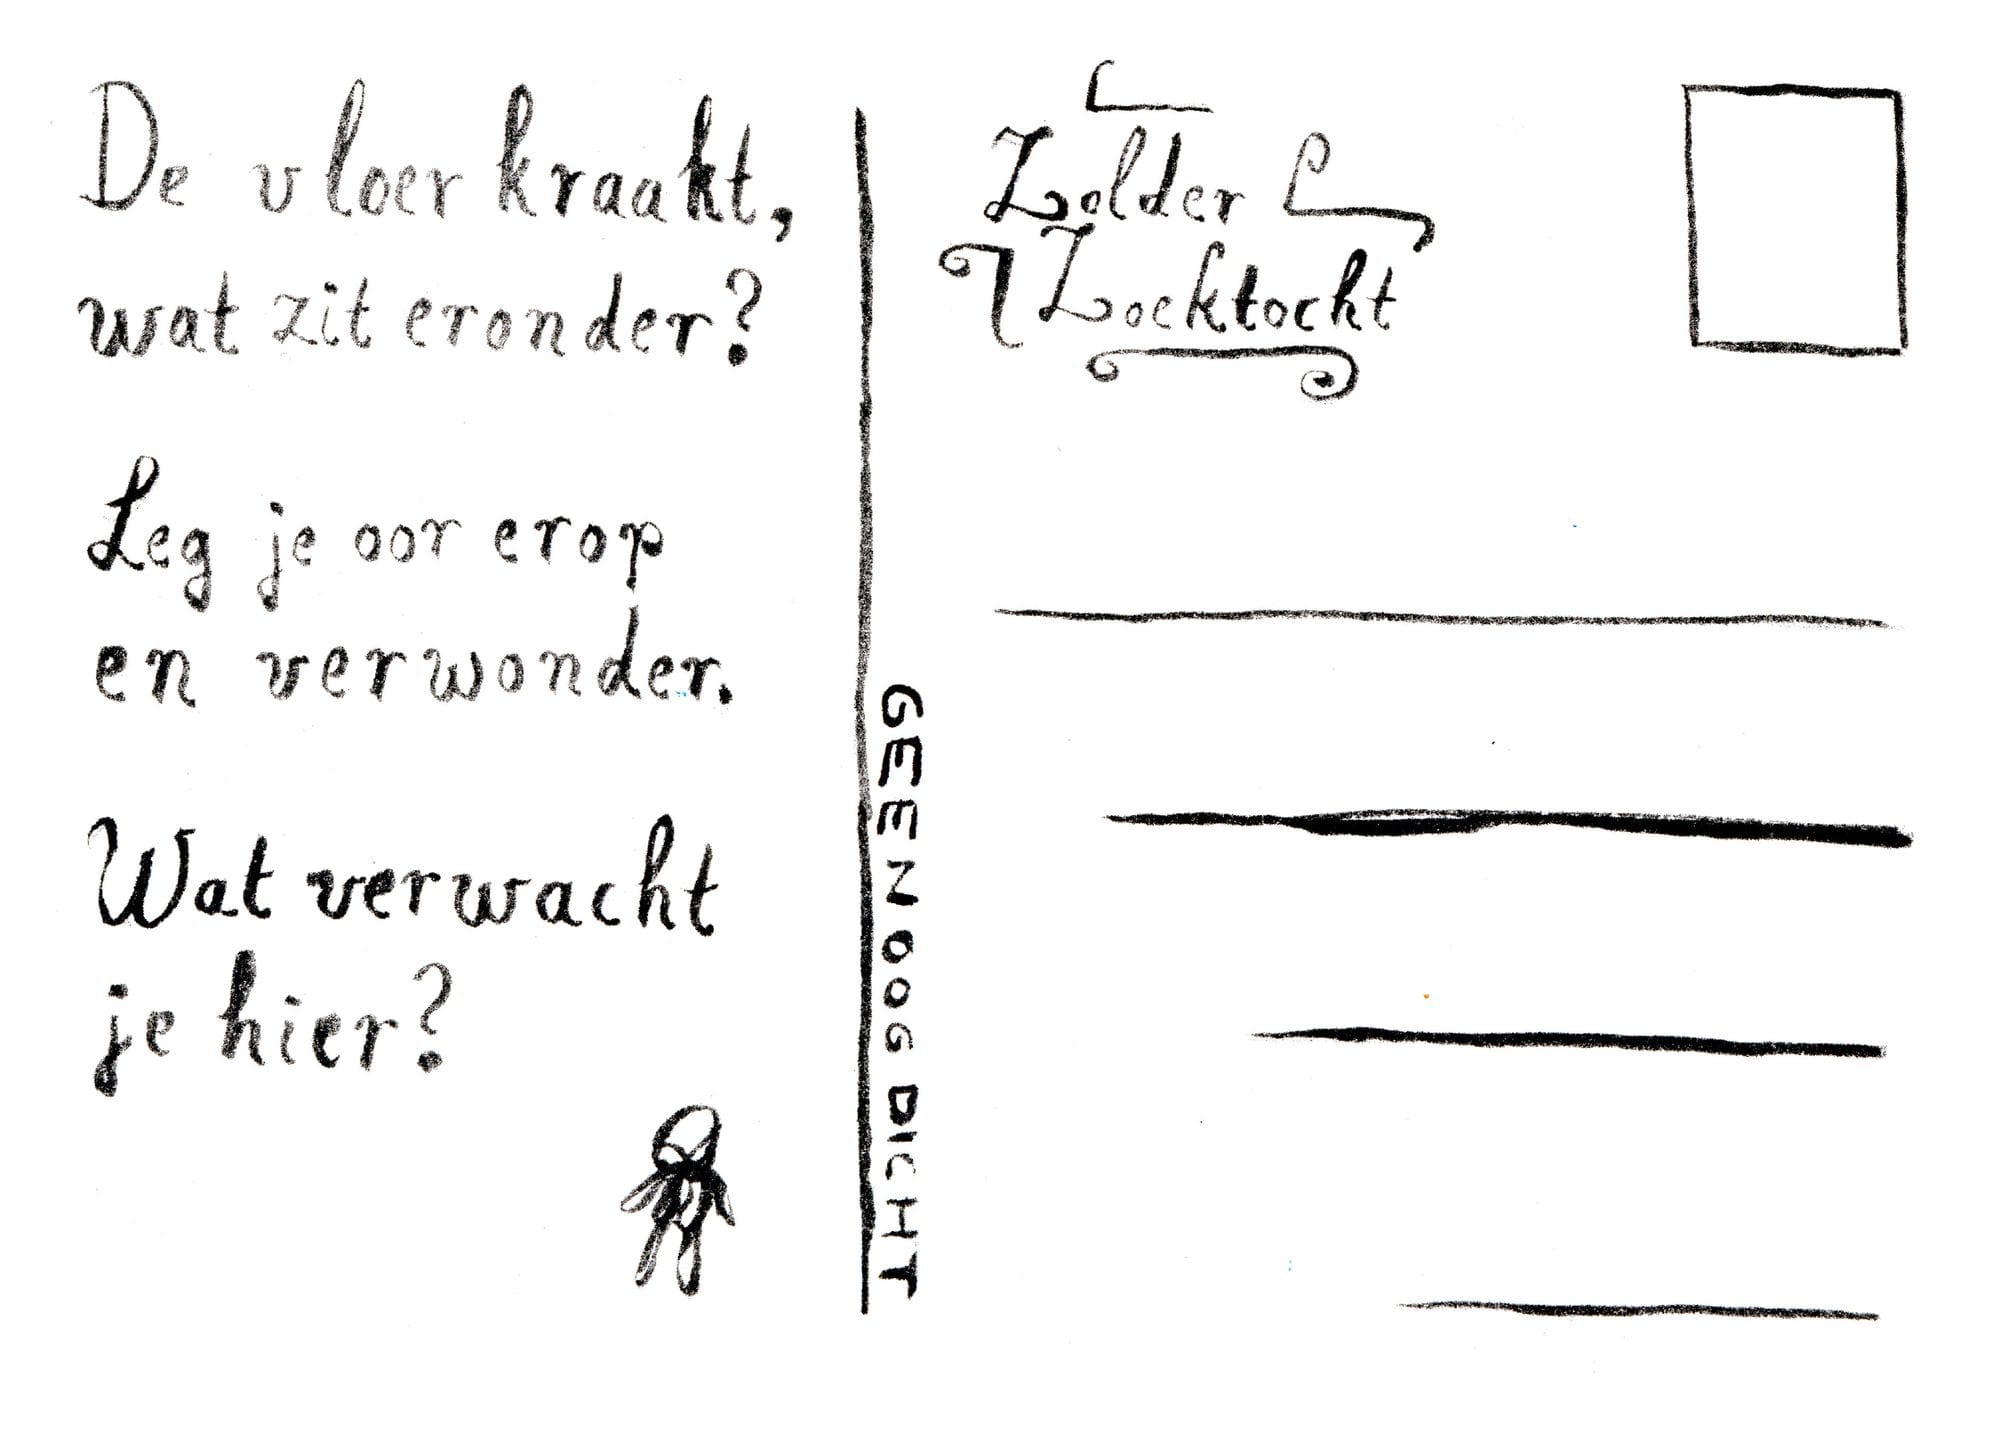 De vloer kraakt,
wat zit eronder?
Leg je oor erop
en verwonder.
Wat verwacht
je hier?
GEEN OOG DICHT
Zolder
Zoektocht